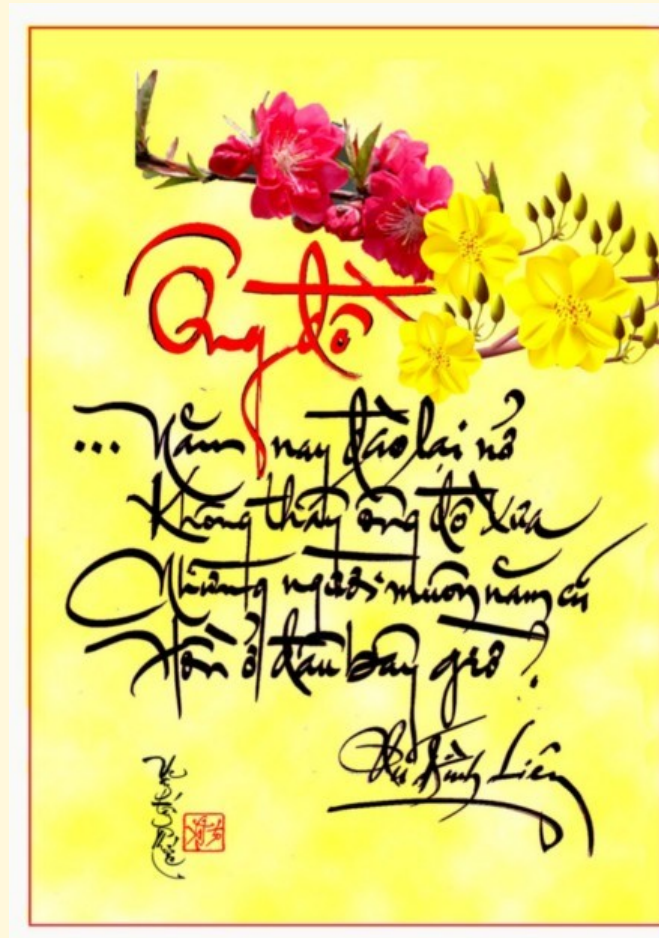 Ông đồ
... Năm nay đào lại nở
Không thấy ông đồ xưa
Những người muôn năm cũ
Hồn ở đâu bây giờ?
Vũ Đình Liên